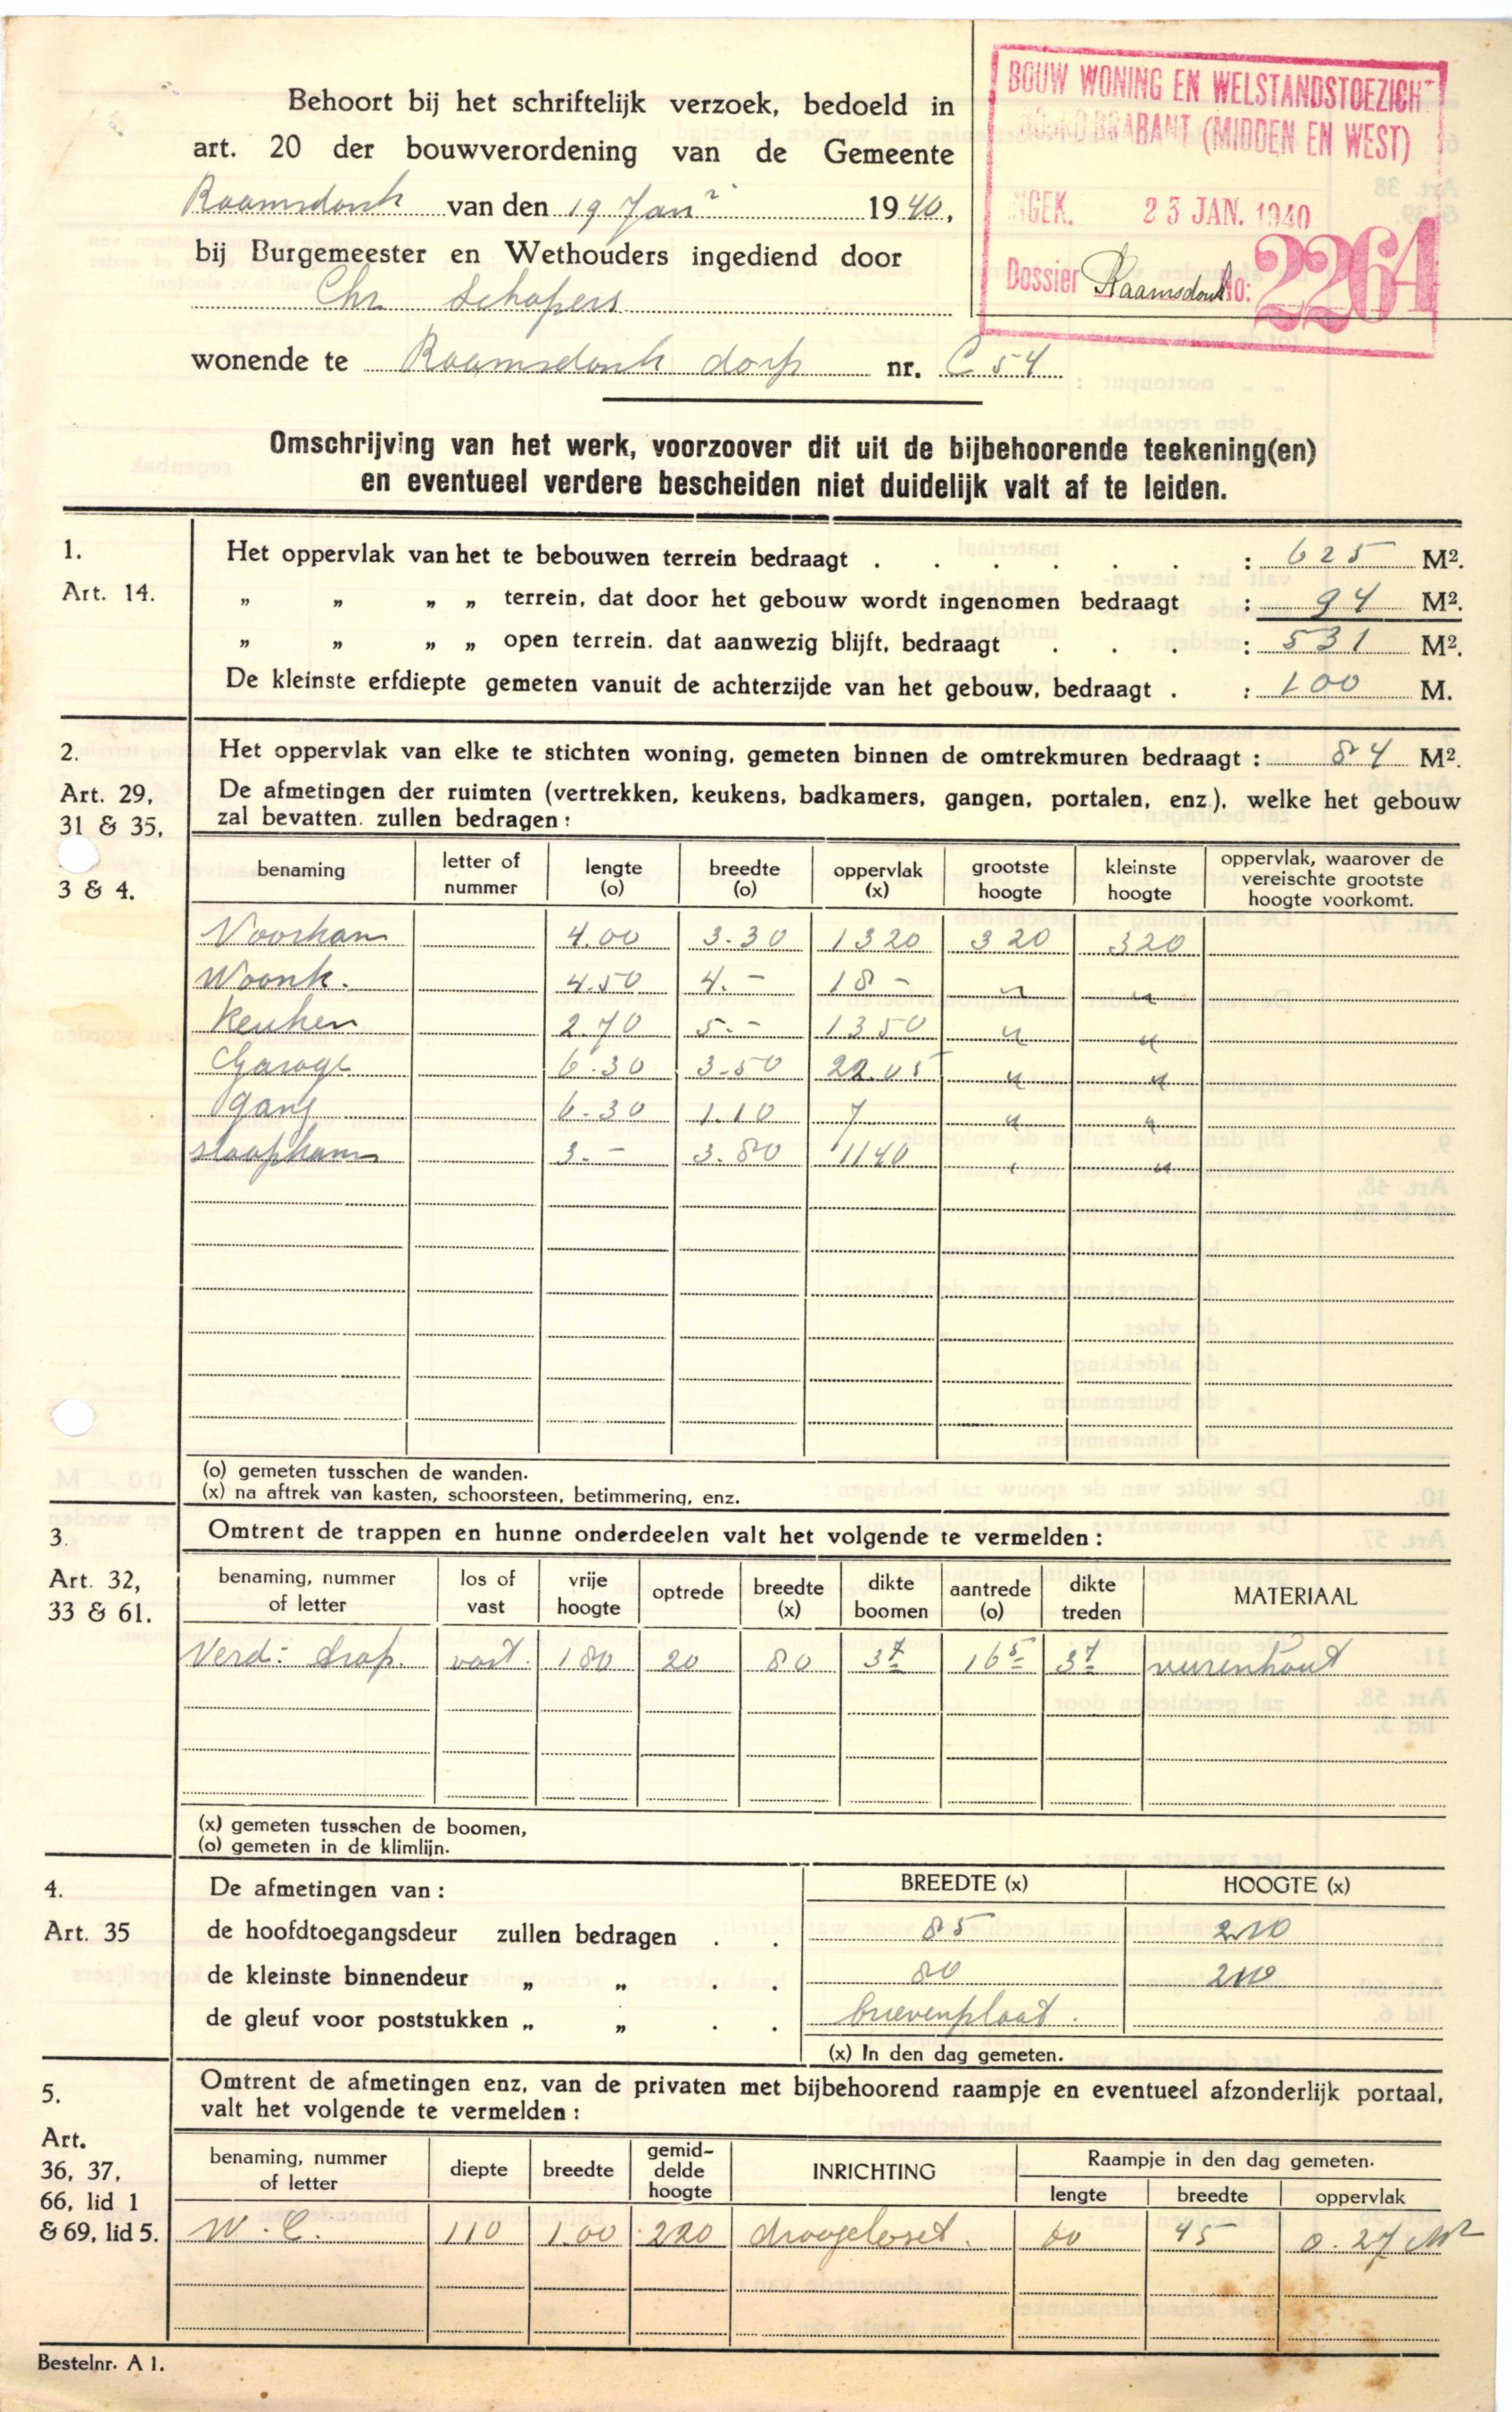 Behoort bij het schriftelijk verzoek, bedoeld in
art. 20 der bouwverordening van de Gemeente
Raamsdonk van den 19 Jan 1940,
bij Burgemeester en Wethouders ingediend door
Chr Schapers
wonende te Raamsdonk dorp nr. C 54
BOUW WONING EN WELSTANDSTOEZICHT
NOORD BRABANT (MIDDEN EN WEST)
INGEK. 23 JAN. 1940
Dossier Raamsdonk No: 2264
Omschrijving van het werk, voorzoover dit uit de bijbehoorende teekening(en)
en eventueel verdere bescheiden niet duidelijk valt af te leiden.
1.
Art. 14.
Het oppervlak van het te bebouwen terrein bedraagt . . . . . . : 625 M².
„ „ „ „ terrein, dat door het gebouw wordt ingenomen bedraagt : 94 M².
„ „ „ „ open terrein. dat aanwezig blijft, bedraagt . . . : 531 M².
De kleinste erfdiepte gemeten vanuit de achterzijde van het gebouw, bedraagt . : 100 M.
2.
Art. 29,
31 & 35,
3 & 4.
Het oppervlak van elke te stichten woning, gemeten binnen de omtrekmuren bedraagt : 84 M².
De afmetingen der ruimten (vertrekken, keukens, badkamers, gangen, portalen, enz.), welke het gebouw
zal bevatten. zullen bedragen :
benaming | letter of nummer | lengte (o) | breedte (o) | oppervlak (x) | grootste hoogte | kleinste hoogte | oppervlak, waarover de vereischte grootste hoogte voorkomt.
Voorkam 4.00 3.30 1320 320 320
Woonk. 4.50 4.- 18 - „ „
Keuken 270 5.- 1350 „ „
Garage 6.30 3.50 22.05 „ „
gang 6.30 1.10 7 „ „
slaapkam 3.- 3.80 1140 „ „
(o) gemeten tusschen de wanden.
(x) na aftrek van kasten, schoorsteen, betimmering, enz.
3.
Art. 32,
33 & 61.
Omtrent de trappen en hunne onderdeelen valt het volgende te vermelden :
benaming, nummer of letter | los of vast | vrije hoogte | optrede | breedte (x) | dikte boomen | aantrede (o) | dikte treden | MATERIAAL
Verd: trap. vast. 180 20 80 3⁷ 16⁵ 3⁷ vurenhout
(x) gemeten tusschen de boomen,
(o) gemeten in de klimlijn.
4.
Art. 35
De afmetingen van : BREEDTE (x) HOOGTE (x)
de hoofdtoegangsdeur zullen bedragen . . 85 210
de kleinste binnendeur „ „ . . 80 210
de gleuf voor poststukken „ „ . . brievenplaat.
(x) In den dag gemeten.
5.
Art.
36, 37,
66, lid 1
& 69, lid 5.
Omtrent de afmetingen enz, van de privaten met bijbehoorend raampje en eventueel afzonderlijk portaal,
valt het volgende te vermelden :
benaming, nummer of letter | diepte | breedte | gemid-delde hoogte | INRICHTING | Raampje in den dag gemeten. lengte | breedte | oppervlak
W.C. 110 1.00 220 droogcloset. 60 45 0.27 M²
Bestelnr. A 1.